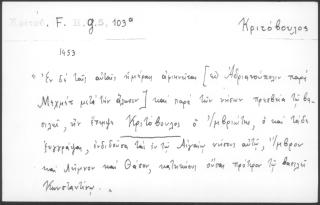 F. g. 5, 103ª
Κριτόβουλος
1453
"Ἐν δὲ ταῖς αὐταῖς ἡμέραις ἀφικνεῖται [εἰς Ἀδριανούπολιν παρὰ
Μεχμὲτ μετὰ τὴν ἅλωσιν] καὶ παρὰ τῶν νήσων πρεσβεία τῷ βα-
σιλεῖ, ἣν ἔπεμψε Κριτόβουλος ὁ Ἴμβριώτης, ὁ καὶ τάδε
ξυγγράψας, ἐνδιδοῦσα τὰς ἐν τῷ Αἰγαίῳ νήσους αὐτῷ, Ἴμβρον
καὶ Λῆμνον καὶ Θάσον, κατηκόους οὔσας πρότερον τῷ βασιλεῖ
Κωνσταντίνῳ.